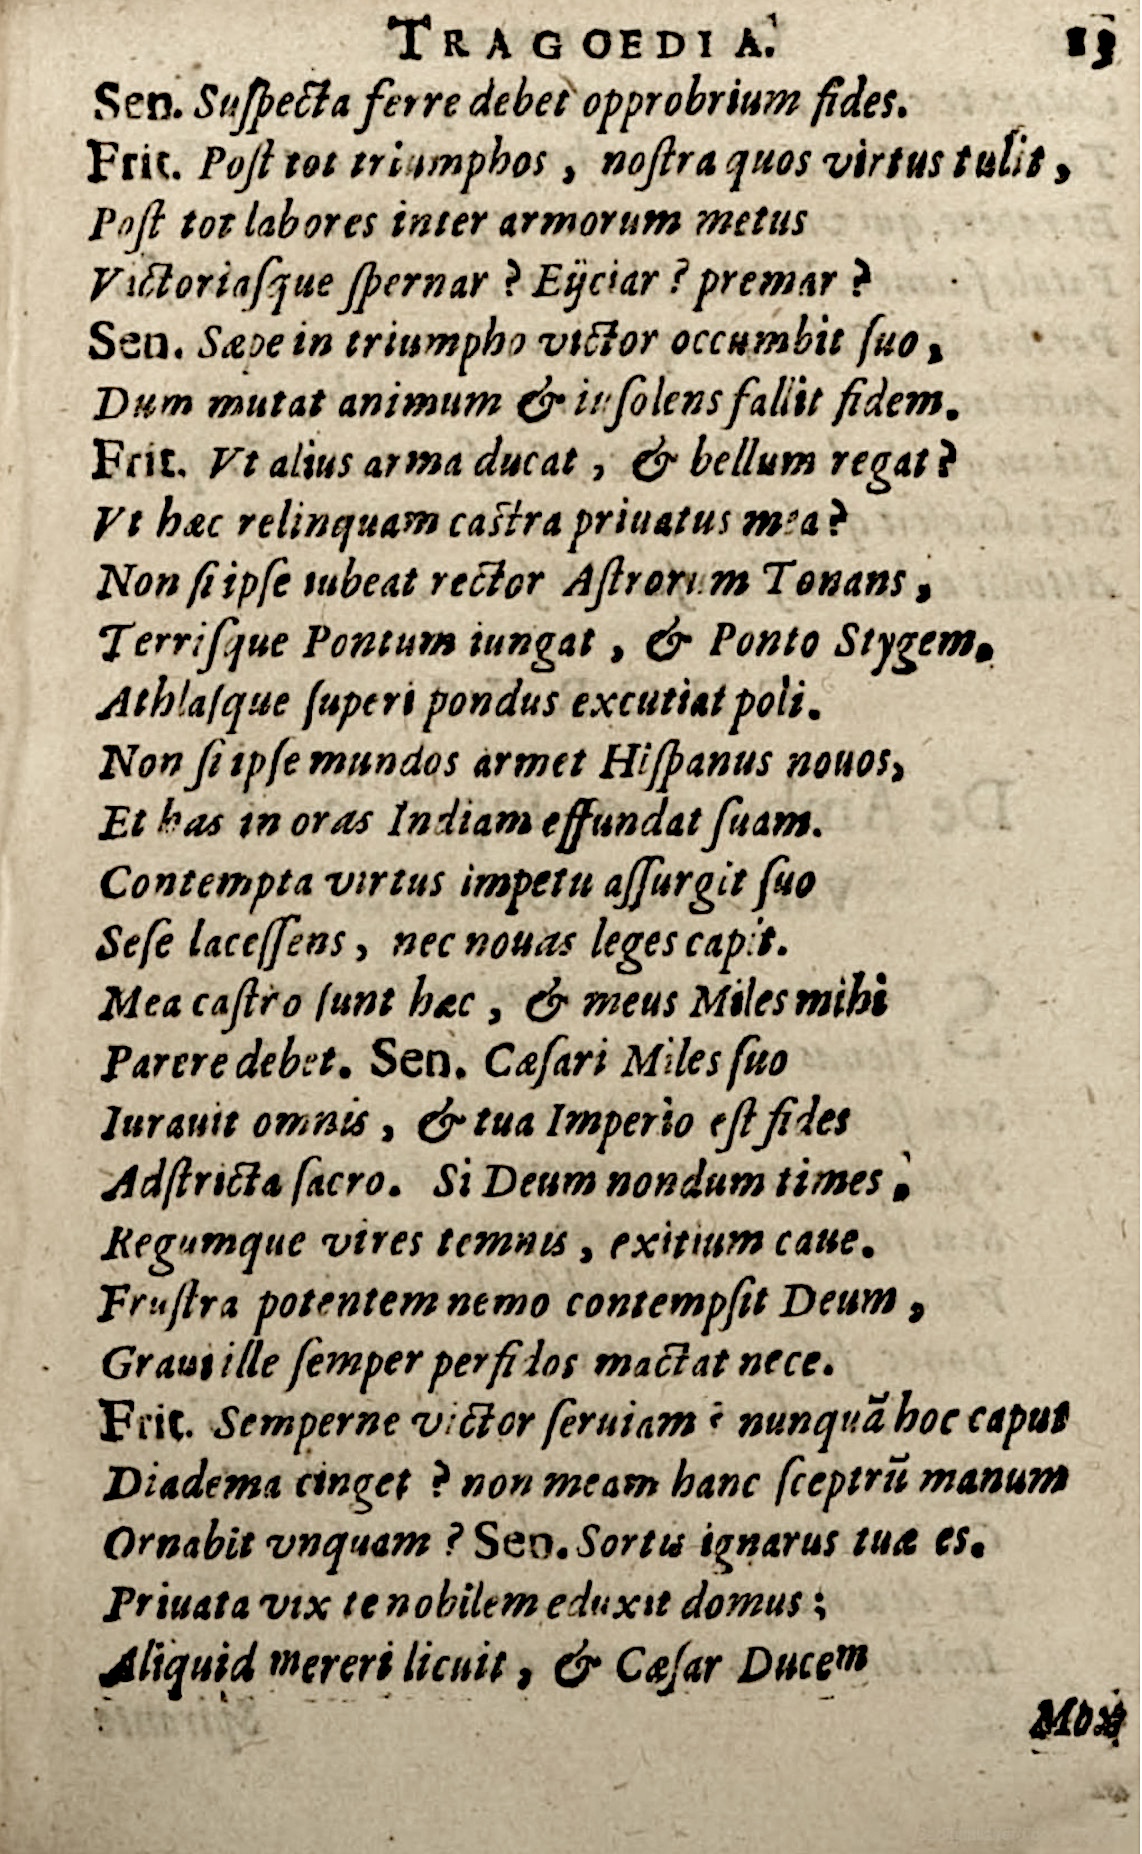 TRAGOEDIA. 13
Sen. Suſpecta ferre debet opprobrium fides.
Frit. Poſt tot triumphos, noſtra quos virtus tulit,
Poſt tot labores inter armorum metus
Victoriaſque ſpernar? Eijciar? premar?
Sen. Sæpe in triumpho victor occumbit ſuo,
Dum mutat animum & inſolens fallit fidem.
Frit. Vt alius arma ducat, & bellum regat?
Vt hæc relinquam caſtra priuatus mea?
Non ſi ipſe iubeat rector Aſtrorum Tonans,
Terriſque Pontum iungat, & Ponto Stygem.
Athlaſque ſuperi pondus excutiat poli.
Non ſi ipſe mundos armet Hiſpanus nouos,
Et has in oras Indiam effundat ſuam.
Contempta virtus impetu aſſurgit ſuo
Seſe laceſſens, nec nouas leges capit.
Mea caſtro ſunt hæc, & meus Miles mihi
Parere debet. Sen. Cæſari Miles ſuo
Iurauit omnis, & tua Imperio eſt fides
Adſtricta ſacro. Si Deum nondum times,
Regumque vires temnis, exitium caue.
Fruſtra potentem nemo contempſit Deum,
Graui ille ſemper perfidos mactat nece.
Frit. Semperne victor ſeruiam? nunquã hoc caput
Diadema cinget? non meam hanc ſceptrũ manum
Ornabit vnquam? Sen. Sortis ignarus tuæ es.
Priuata vix te nobilem eduxit domus;
Aliquid mereri licuit, & Cæſar Ducem
Mox